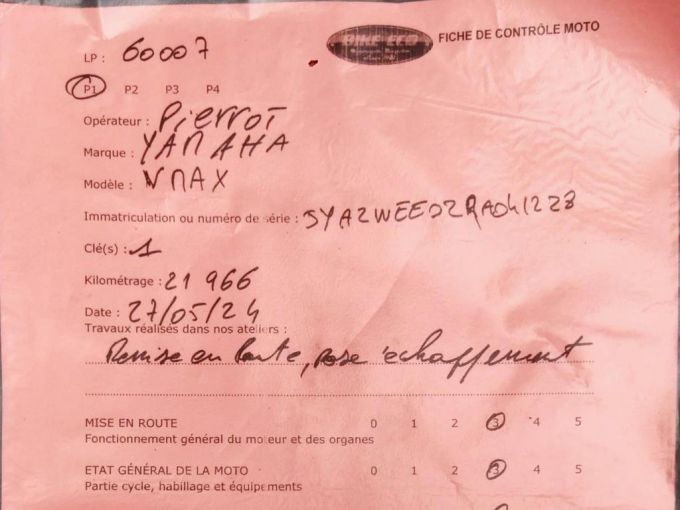 BIKE-ECO FICHE DE CONTRÔLE MOTO
LP : 60007
P1 P2 P3 P4
Opérateur : Pierrot
Marque : YAMAHA
Modèle : VMAX
Immatriculation ou numéro de série : 5YA2WEE02RA041228
Clé(s) : 1
Kilométrage : 21 966
Date : 27/05/24
Travaux réalisés dans nos ateliers :
Remise en route, pose échappement
MISE EN ROUTE 0 1 2 3 4 5
Fonctionnement général du moteur et des organes
ETAT GÉNÉRAL DE LA MOTO 0 1 2 3 4 5
Partie cycle, habillage et équipements